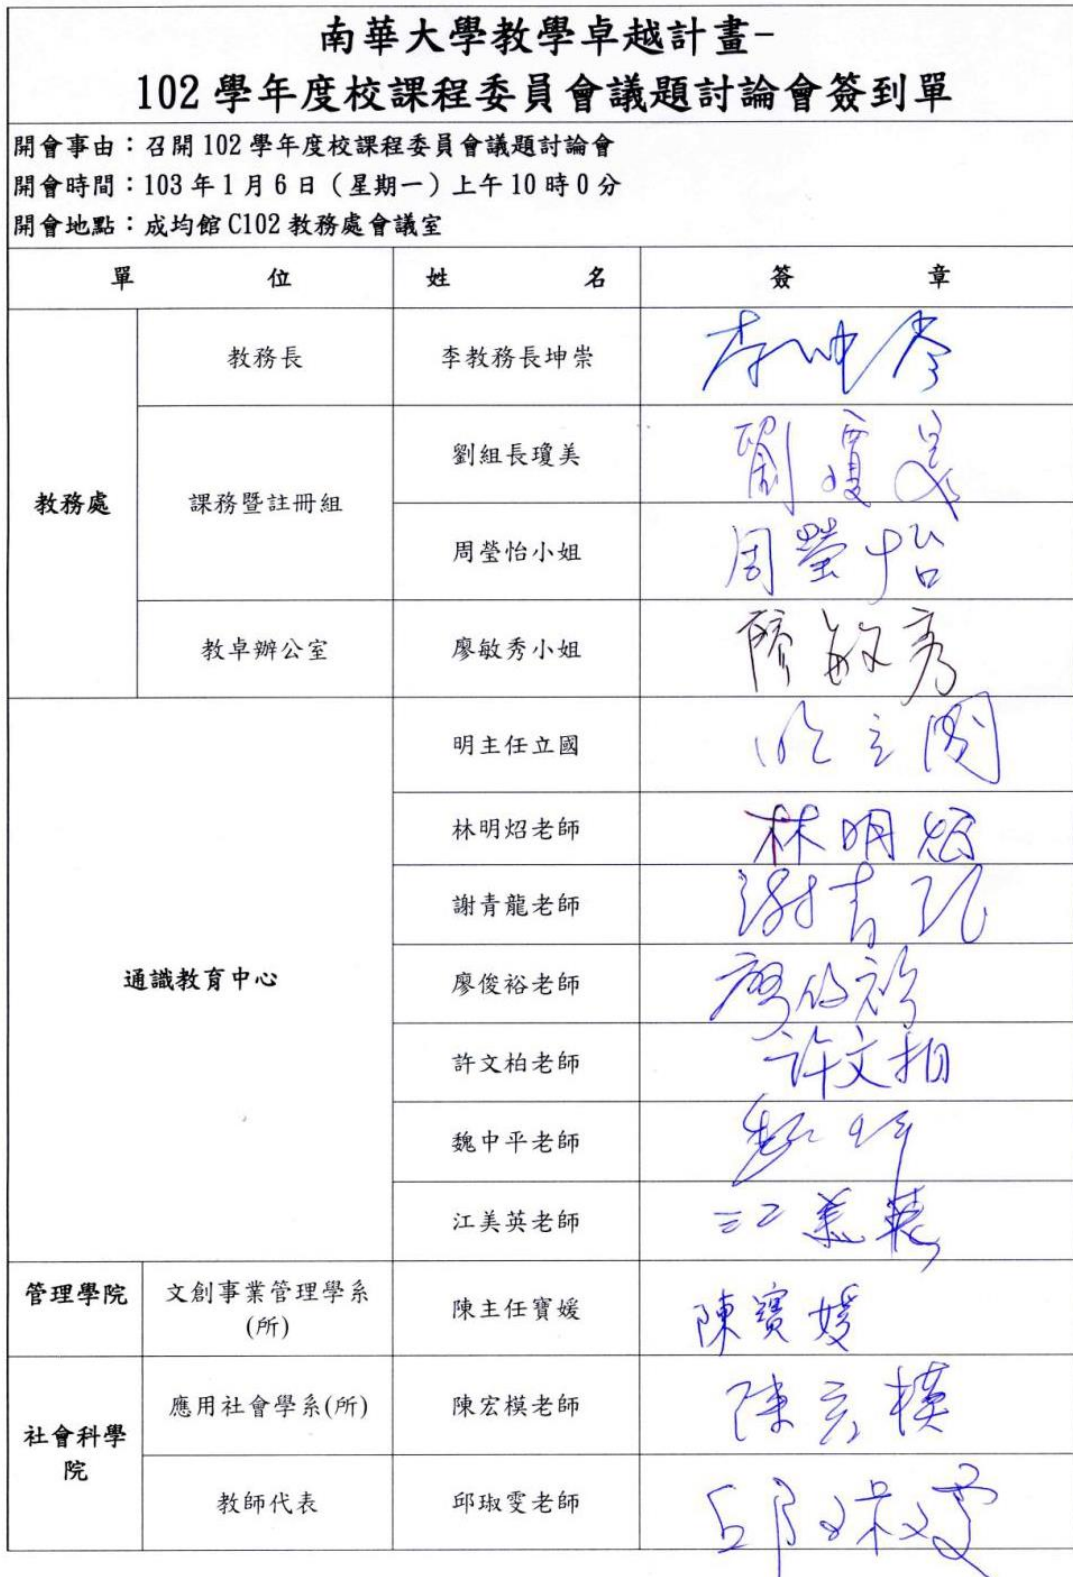 南華大學教學卓越計畫-
102 學年度校課程委員會議題討論會簽到單
開會事由：召開 102 學年度校課程委員會議題討論會
開會時間：103 年 1 月 6 日（星期一）上午 10 時 0 分
開會地點：成均館 C102 教務處會議室
單 位 姓 名 簽 章
教務處 教務長 李教務長坤崇 李坤崇
課務暨註冊組 劉組長瓊美 劉瓊美
周瑩怡小姐 周瑩怡
教卓辦公室 廖敏秀小姐 廖敏秀
通識教育中心 明主任立國 明立國
林明炤老師 林明炤
謝青龍老師 謝青龍
廖俊裕老師 廖俊裕
許文柏老師 許文柏
魏中平老師 魏中平
江美英老師 江美英
管理學院 文創事業管理學系(所) 陳主任寶媛 陳寶媛
社會科學院 應用社會學系(所) 陳宏模老師 陳宏模
教師代表 邱琡雯老師 邱琡雯